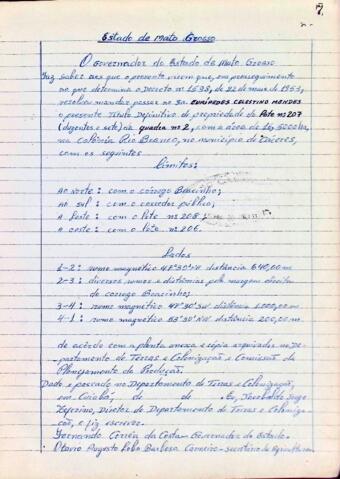 7.
Estado de Mato Grosso
O Governador do Estado de Mato Grosso
Faz saber aos que o presente virem que, em prosseguimento
no que determina o Decreto nº 1598, de 22 de maio de 1953,
resolveu mandar passar ao Sr. EURIPEDES CELESTINO MENDES
o presente Título Definitivo de propriedade do Lote nº 207
(dozentos e sete) na quadra nº 2, com a área de
na Colônia Rio Branco, no município de Cáceres,
com os seguintes
Limites:
Ao norte: com o córrego Bracinho;
Ao sul: com o corredor público;
A leste: com o lote nº 208;
A oeste: com o lote nº 206.
Lados
1-2: rumo magnético distância 640,00 m
2-3: diversos rumos e distâncias pela margem direita
do córrego Bracinho;
3-4: rumo magnético distância 1.000,00 m
4-1: rumo magnético distância 200,00 m
de acôrdo com a planta anexa e cópia arquivada no De-
partamento de Terras e Colonização e Comissão de
Planejamento da Produção.
Dado e passado no Departamento de Terras e Colonização,
em Cuiabá, de de Eu,
Zeferino, Diretor do Departamento de Terras e Coloniza-
ção, o fiz escrever.
Fernando Corrêa da Costa - Governador do Estado.
Otavio Augusto Lobo Barbosa Carneiro - secretário da Agricultura